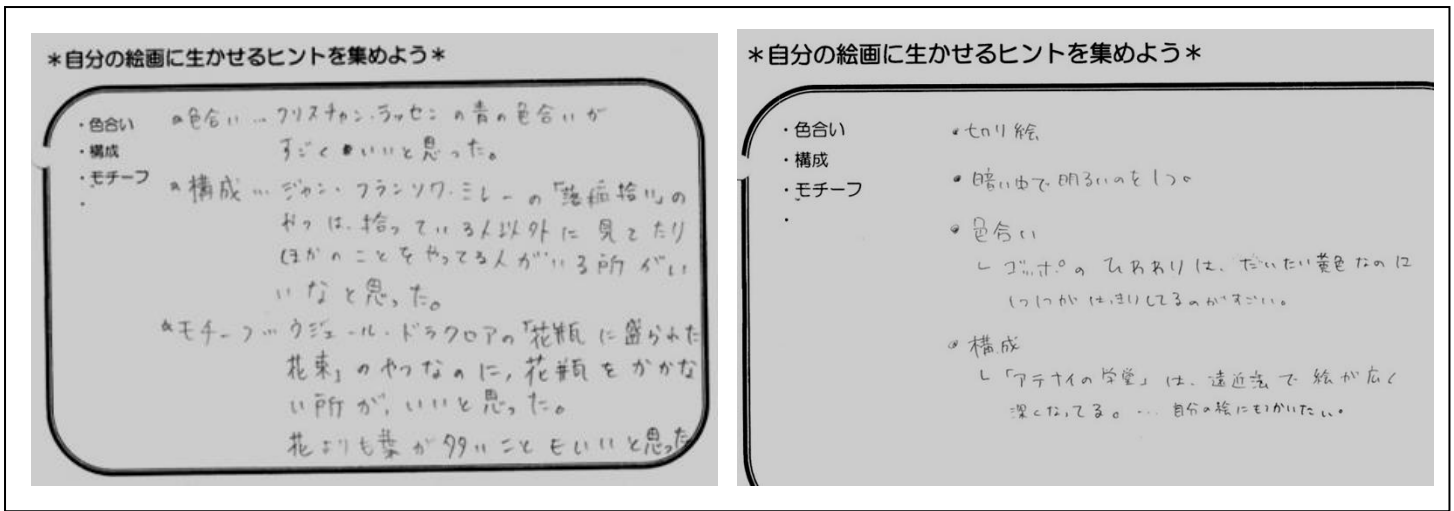 *自分の絵画に生かせるヒントを集めよう*
・色合い
・構成
・モチーフ
・
色合い…クリスチャン・ラッセンの青の色合いが
すごくいいと思った。
構成…ジャン・フランソワ・ミレーの「落穂拾い」の
やつは、拾っている人以外に見てたり
ほかのことをやってる人がいる所がい
いなと思った。
モチーフ…ウジェール・ドラクロアの「花瓶に盛られた
花束」のやつなのに,花瓶をかかな
い所が、いいと思った。
花よりも葉が多いこともいいと思った
*自分の絵画に生かせるヒントを集めよう*
・色合い
・構成
・モチーフ
・
・切り絵
・暗い中で明るいのを1つ。
・色合い
└ ゴッホのひまわりは、だいたい黄色なのに
1つ1つがはっきりしてるのがすごい。
・構成
└「アテナイの学堂」は、遠近法で絵が広く
深くなってる。…自分の絵にもかいたい。